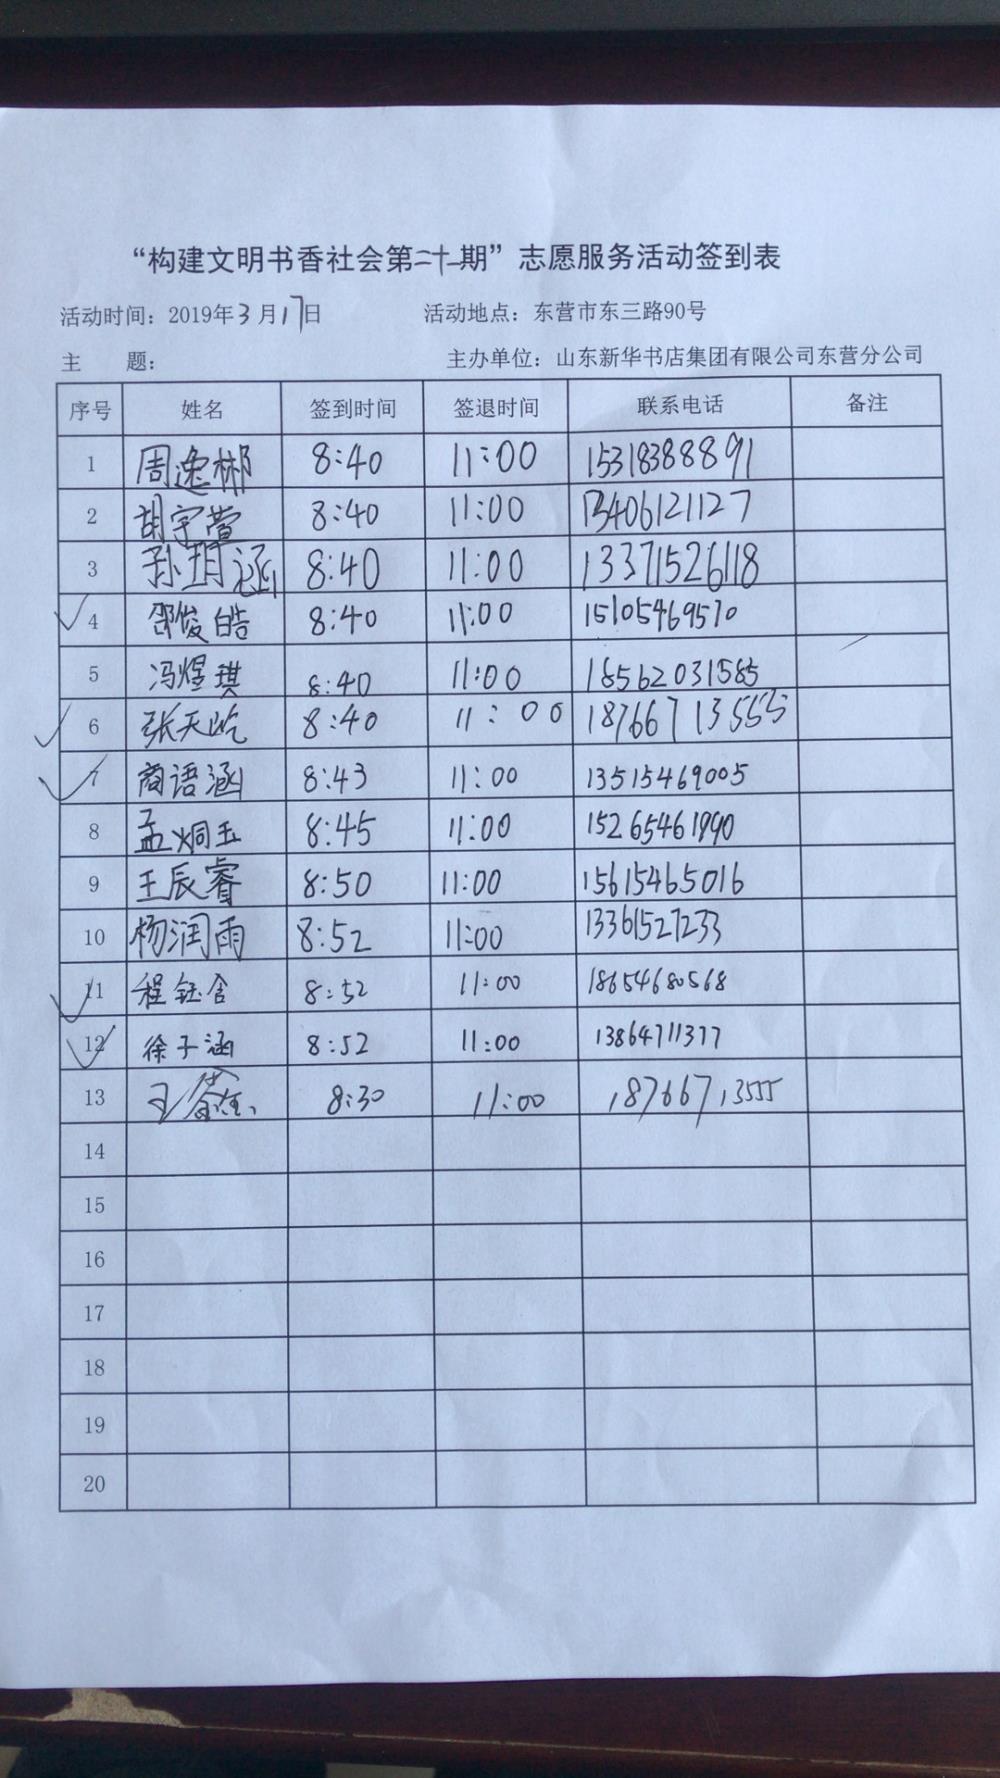 “构建文明书香社会第二十一期”志愿服务活动签到表
活动时间：2019年3月17日 活动地点：东营市东三路90号
主 题： 主办单位：山东新华书店集团有限公司东营分公司
序号 姓名 签到时间 签退时间 联系电话 备注
1 周逸彬 8:40 11:00 15318388891
2 胡宇萱 8:40 11:00 13406121127
3 孙玥涵 8:40 11:00 13371526118
4 邵俊皓 8:40 11:00 15105469510
5 冯煜琪 8:40 11:00 18562031585
6 张天屹 8:40 11:00 18766713555
7 商语涵 8:43 11:00 13515469005
8 孟炯玉 8:45 11:00
9 王辰睿 8:50 11:00 15615465016
10 杨润雨 8:52 11:00 13361527233
11 程钰含 8:52 11:00 18654680568
12 徐子涵 8:52 11:00 13864711377
13 8:30 11:00 18766713555
14
15
16
17
18
19
20